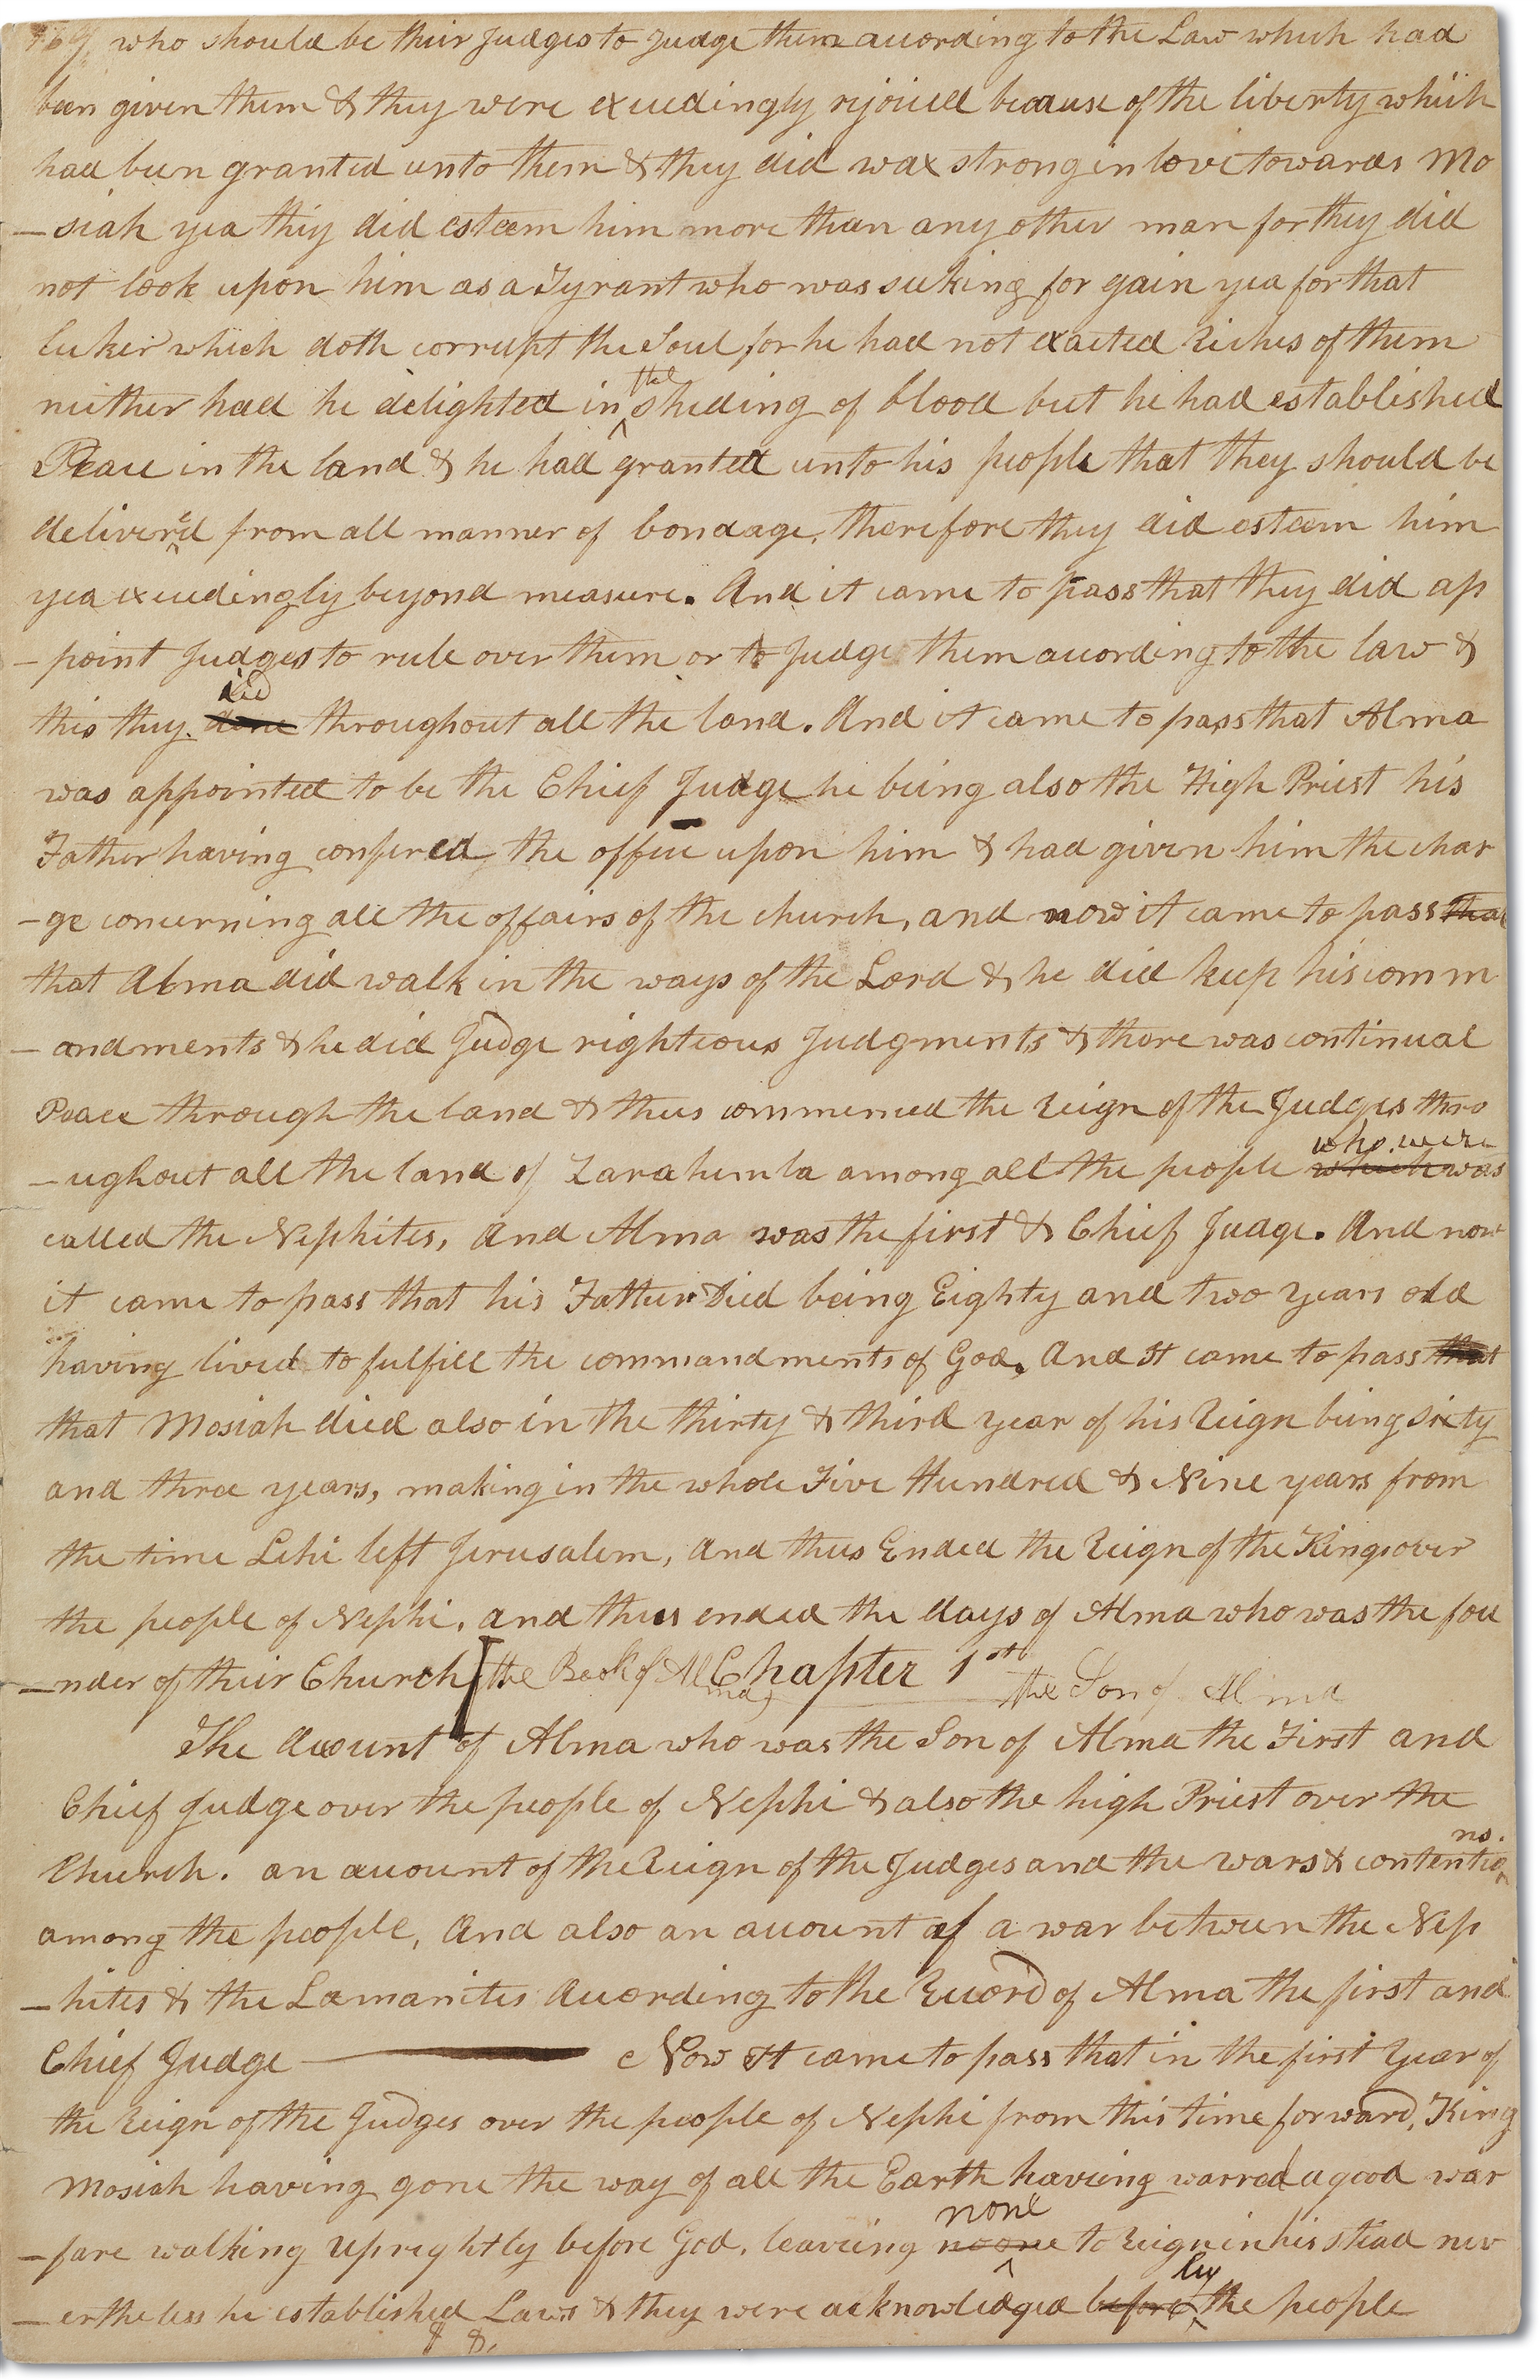 169 who should be their Judges to Judge them according to the Law which had
been given them & they were exceedingly rejoiced because of the liberty which
had been granted unto them & they did wax strong in love towards Mo
-siah yea they did esteem him more than any other man for they did
not look upon him as a Tyrant who was seeking for gain yea for that
luker which doth corrupt the Soul for he had not exacted Riches of them
neither had he delighted in the sheding of blood but he had established
Peace in the land & he had granted unto his people that they should be
delivered from all manner of bondage, therefore they did esteem him
yea exceedingly beyond measure. And it came to pass that they did ap
-point Judges to rule over them or to Judge them according to the law &
did
this they done throughout all the land. And it came to pass that Alma
was appointed to be the Chief Judge he being also the High Priest his
Father having confered the office upon him & had given him the char
-ge concerning all the affairs of the church, and now it came to pass that
that Alma did walk in the ways of the Lord & he did keep his comm
-andments & he did Judge righteous Judgments & there was continual
Peace through the land & thus commenced the Reign of the Judges thro
who were
-ughout all the land of Zarahemla among all the people which was
called the Nephites, And Alma was the first & Chief Judge. And now
it came to pass that his Father Died being Eighty and two years old
having lived to fulfill the commandments of God, And It came to pass that
that Mosiah died also in the thirty & third year of his Reign being sixty
and three years, making in the whole Five Hundred & Nine years from
the time Lehi left Jerusalem, And thus Ended the Reign of the Kings over
the people of Nephi, and thus ended the days of Alma who was the fou
-nder of their Church the Book of Alma Chapter 1st the Son of Alma
The Account of Alma who was the Son of Alma the First and
Chief Judge over the people of Nephi & also the high Priest over the
ns.
Church. an account of the Reign of the Judges and the wars & contentio
among the people, And also an account of a war between the Nep
-hites & the Lamanites According to the Record of Alma the first and
Chief Judge Now It came to pass that in the first Year of
the Reign of the Judges over the people of Nephi from this time forward, King
Mosiah having gone the way of all the Earth having warred a good war
none
-fare walking uprightly before God, leaveing noone to Reign in his stead nev
by
-ertheless he established Laws & they were acknowledged before the people
& &.